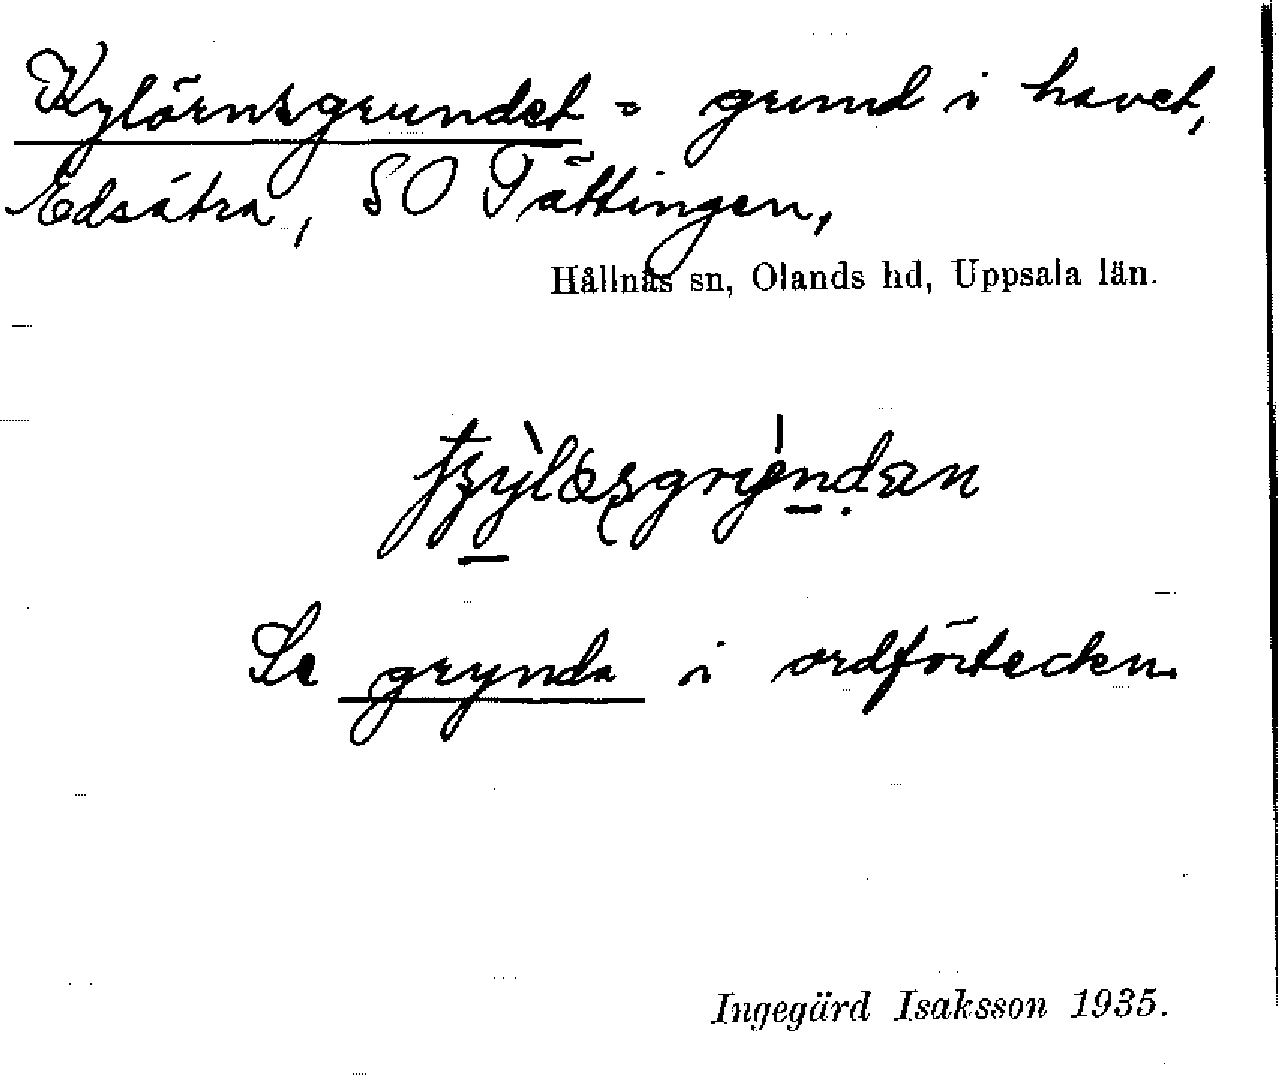 Kylörnsgrundet = grund i havet,
Edsätra, SO Tättingen,
Hållnäs sn, Olands hd, Uppsala län.
Se grynda i ordförteckn.
Ingegärd Isaksson 1935.